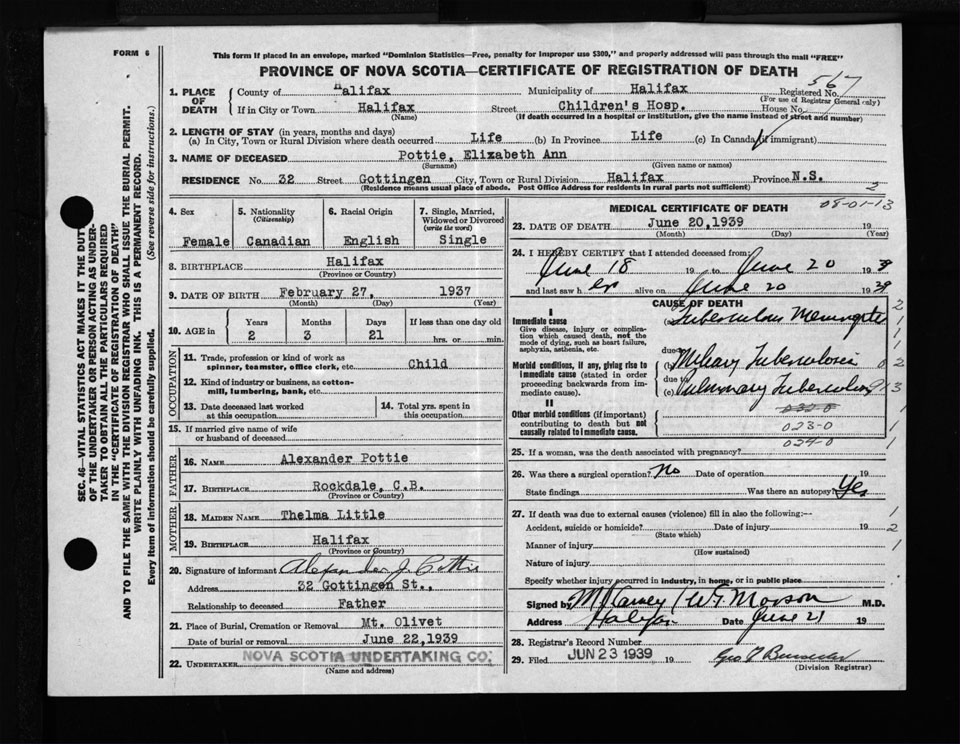 FORM 6
This form if placed in an envelope, marked "Dominion Statistics—Free, penalty for improper use $300," and properly addressed will pass through the mail "FREE"
PROVINCE OF NOVA SCOTIA—CERTIFICATE OF REGISTRATION OF DEATH
567
1. PLACE OF DEATH
County of Halifax Municipality of Halifax Registered No.
(For use of Registrar General only)
If in City or Town Halifax Street Children's Hosp. House No.
(Name) (If death occurred in a hospital or institution, give the name instead of street and number)
2. LENGTH OF STAY (in years, months and days)
(a) In City, Town or Rural Division where death occurred Life (b) In Province Life (c) In Canada (if immigrant)
3. NAME OF DECEASED Pottie, Elizabeth Ann
(Surname) (Given name or names)
RESIDENCE No. 32 Street Gottingen City, Town or Rural Division Halifax Province N.S.
(Residence means usual place of abode. Post Office Address for residents in rural parts not sufficient)
2
08-01-13
4. Sex 5. Nationality (Citizenship) 6. Racial Origin 7. Single, Married, Widowed or Divorced (write the word)
Female Canadian English Single
8. BIRTHPLACE Halifax
(Province or Country)
9. DATE OF BIRTH February 27, 1937
(Month) (Day) (Year)
10. AGE in Years Months Days If less than one day old
2 3 21 hrs. or min.
OCCUPATION
11. Trade, profession or kind of work as spinner, teamster, office clerk, etc. Child
12. Kind of industry or business, as cotton-mill, lumbering, bank, etc.
13. Date deceased last worked at this occupation
14. Total yrs. spent in this occupation
15. If married give name of wife or husband of deceased
FATHER
16. NAME Alexander Pottie
17. BIRTHPLACE Rockdale, C.B.
(Province or Country)
MOTHER
18. MAIDEN NAME Thelma Little
19. BIRTHPLACE Halifax
(Province or Country)
20. Signature of informant Alexander J. Pottie
Address 32 Gottingen St.,
Relationship to deceased Father
21. Place of Burial, Cremation or Removal Mt. Olivet
Date of burial or removal June 22,1939
22. UNDERTAKER NOVA SCOTIA UNDERTAKING CO.
(Name and address)
MEDICAL CERTIFICATE OF DEATH
23. DATE OF DEATH June 20,1939 19
(Month) (Day) (Year)
24. I HEREBY CERTIFY that I attended deceased from
June 18 19 to June 20 1939
and last saw h er alive on June 20 1939
CAUSE OF DEATH
I
Immediate cause
Give disease, injury or complication which caused death, not the mode of dying, such as heart failure, asphyxia, asthenia, etc.
(a) Tuberculous Meningitis
due to
Morbid conditions, if any, giving rise to immediate cause (stated in order proceeding backwards from immediate cause)
(b) Miliary Tuberculosis
due to
(c) Pulmonary Tuberculosis
II
Other morbid conditions (if important) contributing to death but not causally related to immediate cause.
023-0
029-0
25. If a woman, was the death associated with pregnancy?
26. Was there a surgical operation? No Date of operation 19
State findings Was there an autopsy? Yes
27. If death was due to external causes (violence) fill in also the following:—
Accident, suicide or homicide? Date of injury 19
(State which)
Manner of injury
(How sustained)
Nature of injury
Specify whether injury occurred in industry, in home, or in public place
Signed by M.D.
Address Halifax Date June 21 19
28. Registrar's Record Number
29. Filed JUN 23 1939 19
(Division Registrar)
SEC. 46—VITAL STATISTICS ACT MAKES IT THE DUTY
OF THE UNDERTAKER OR PERSON ACTING AS UNDER-
TAKER TO OBTAIN ALL THE PARTICULARS REQUIRED
IN THE "CERTIFICATE OF REGISTRATION OF DEATH"
AND TO FILE THE SAME WITH THE DIVISION REGISTRAR WHO SHALL ISSUE THE BURIAL PERMIT.
WRITE PLAINLY WITH UNFADING INK. THIS IS A PERMANENT RECORD.
Every item of information should be carefully supplied. (See reverse side for instructions.)